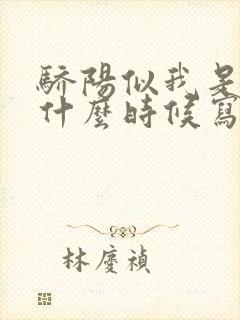 驕陽似我是
什麼時候寫
林慶禎